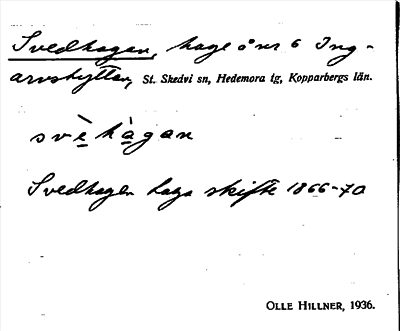 Svedhagen, hage å nr 6 Ing-
arvshyttan, St. Skedvi sn, Hedemora tg, Kopparbergs län.
svèhàgan
Svedhagen laga skifte 1866-70
OLLE HILLNER, 1936.